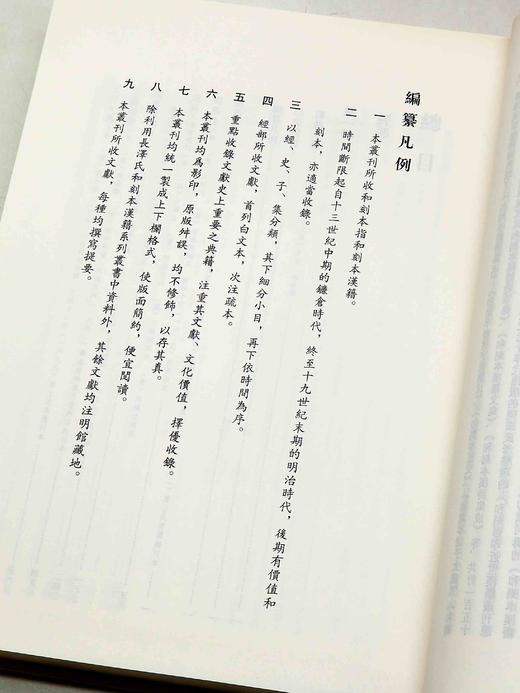 編纂凡例
一 本叢刊所收和刻本指和刻本漢籍。
二 時間斷限起自十三世紀中期的鎌倉時代，終至十九世紀末期的明治時代，後期有價值和
刻本，亦適當收錄。
三 以經、史、子、集分類，其下細分小目，再下依時間為序。
四 經部所收文獻，首列白文本，次注疏本。
五 重點收錄文獻史上重要之典籍，注重其文獻、文化價值，擇優收錄。
六 本叢刊均為影印，原版舛誤，均不修飾，以存其真。
七 本叢刊均統一製成上下欄格式，使版面簡約，便宜閱讀。
八 除利用長澤氏和刻本漢籍系列叢書中資料外，其餘文獻均注明館藏地。
九 本叢刊所收文獻，每種均撰寫提要。